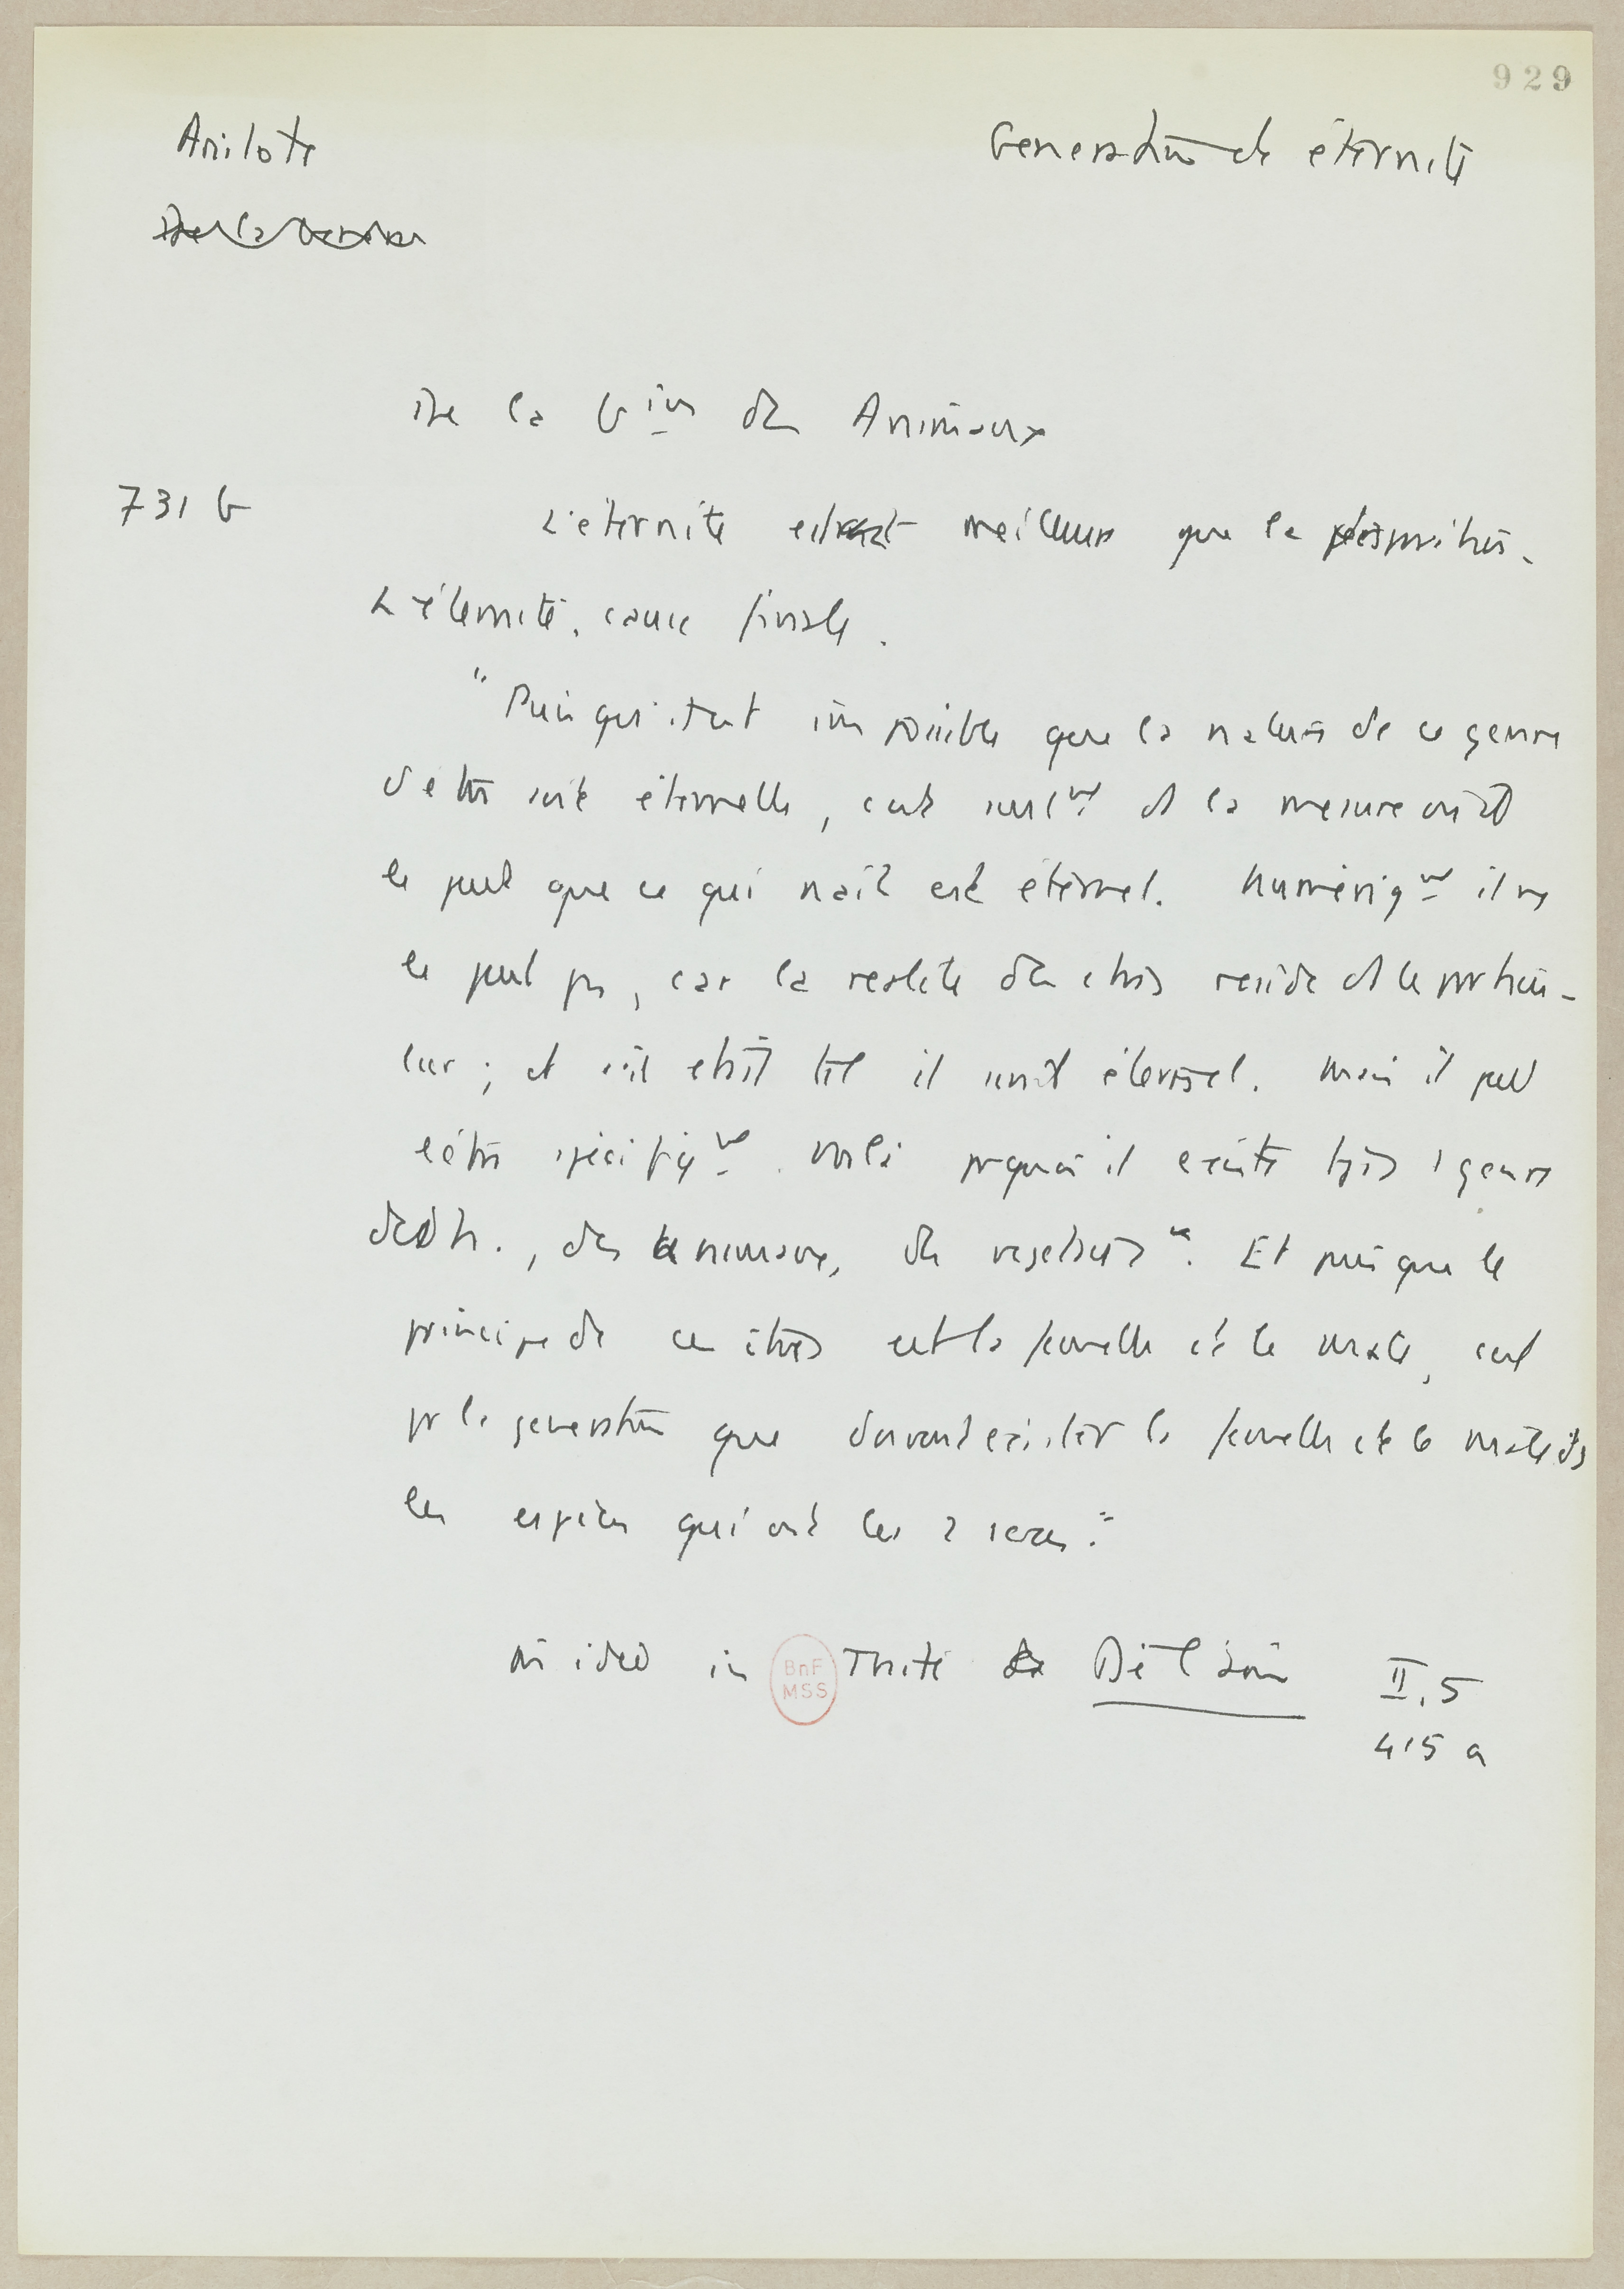 929
Aristote
Generation et éternité
De la Generation
De la Gion des Animaux
731 b
L'éternité est meilleure que la
L'éternité, cause finale.
"Puisqu'il est impossible que la nature de ce genre
d'être soit éternelle, c'est seulnt ds la mesure où il
le peut que ce qui naît est éternel. Numériqnt il ne
le peut pas, car la réalité des êtres réside ds le particu-
lier ; et s'il était tel il serait éternel. Mais il peut
l'être spécifiqnt. Voilà pquoi il existe tjrs 1 genre
des h., des animaux, des végétaux". Et puisque le
principe de ces êtres est la femelle et le mâle, c'est
pr la génération que doivent exister la femelle et le mâle ds
les espèces qui ont les 2 sexes."
idée in Traité De l'âme II, 5
415 a
BnF
MSS